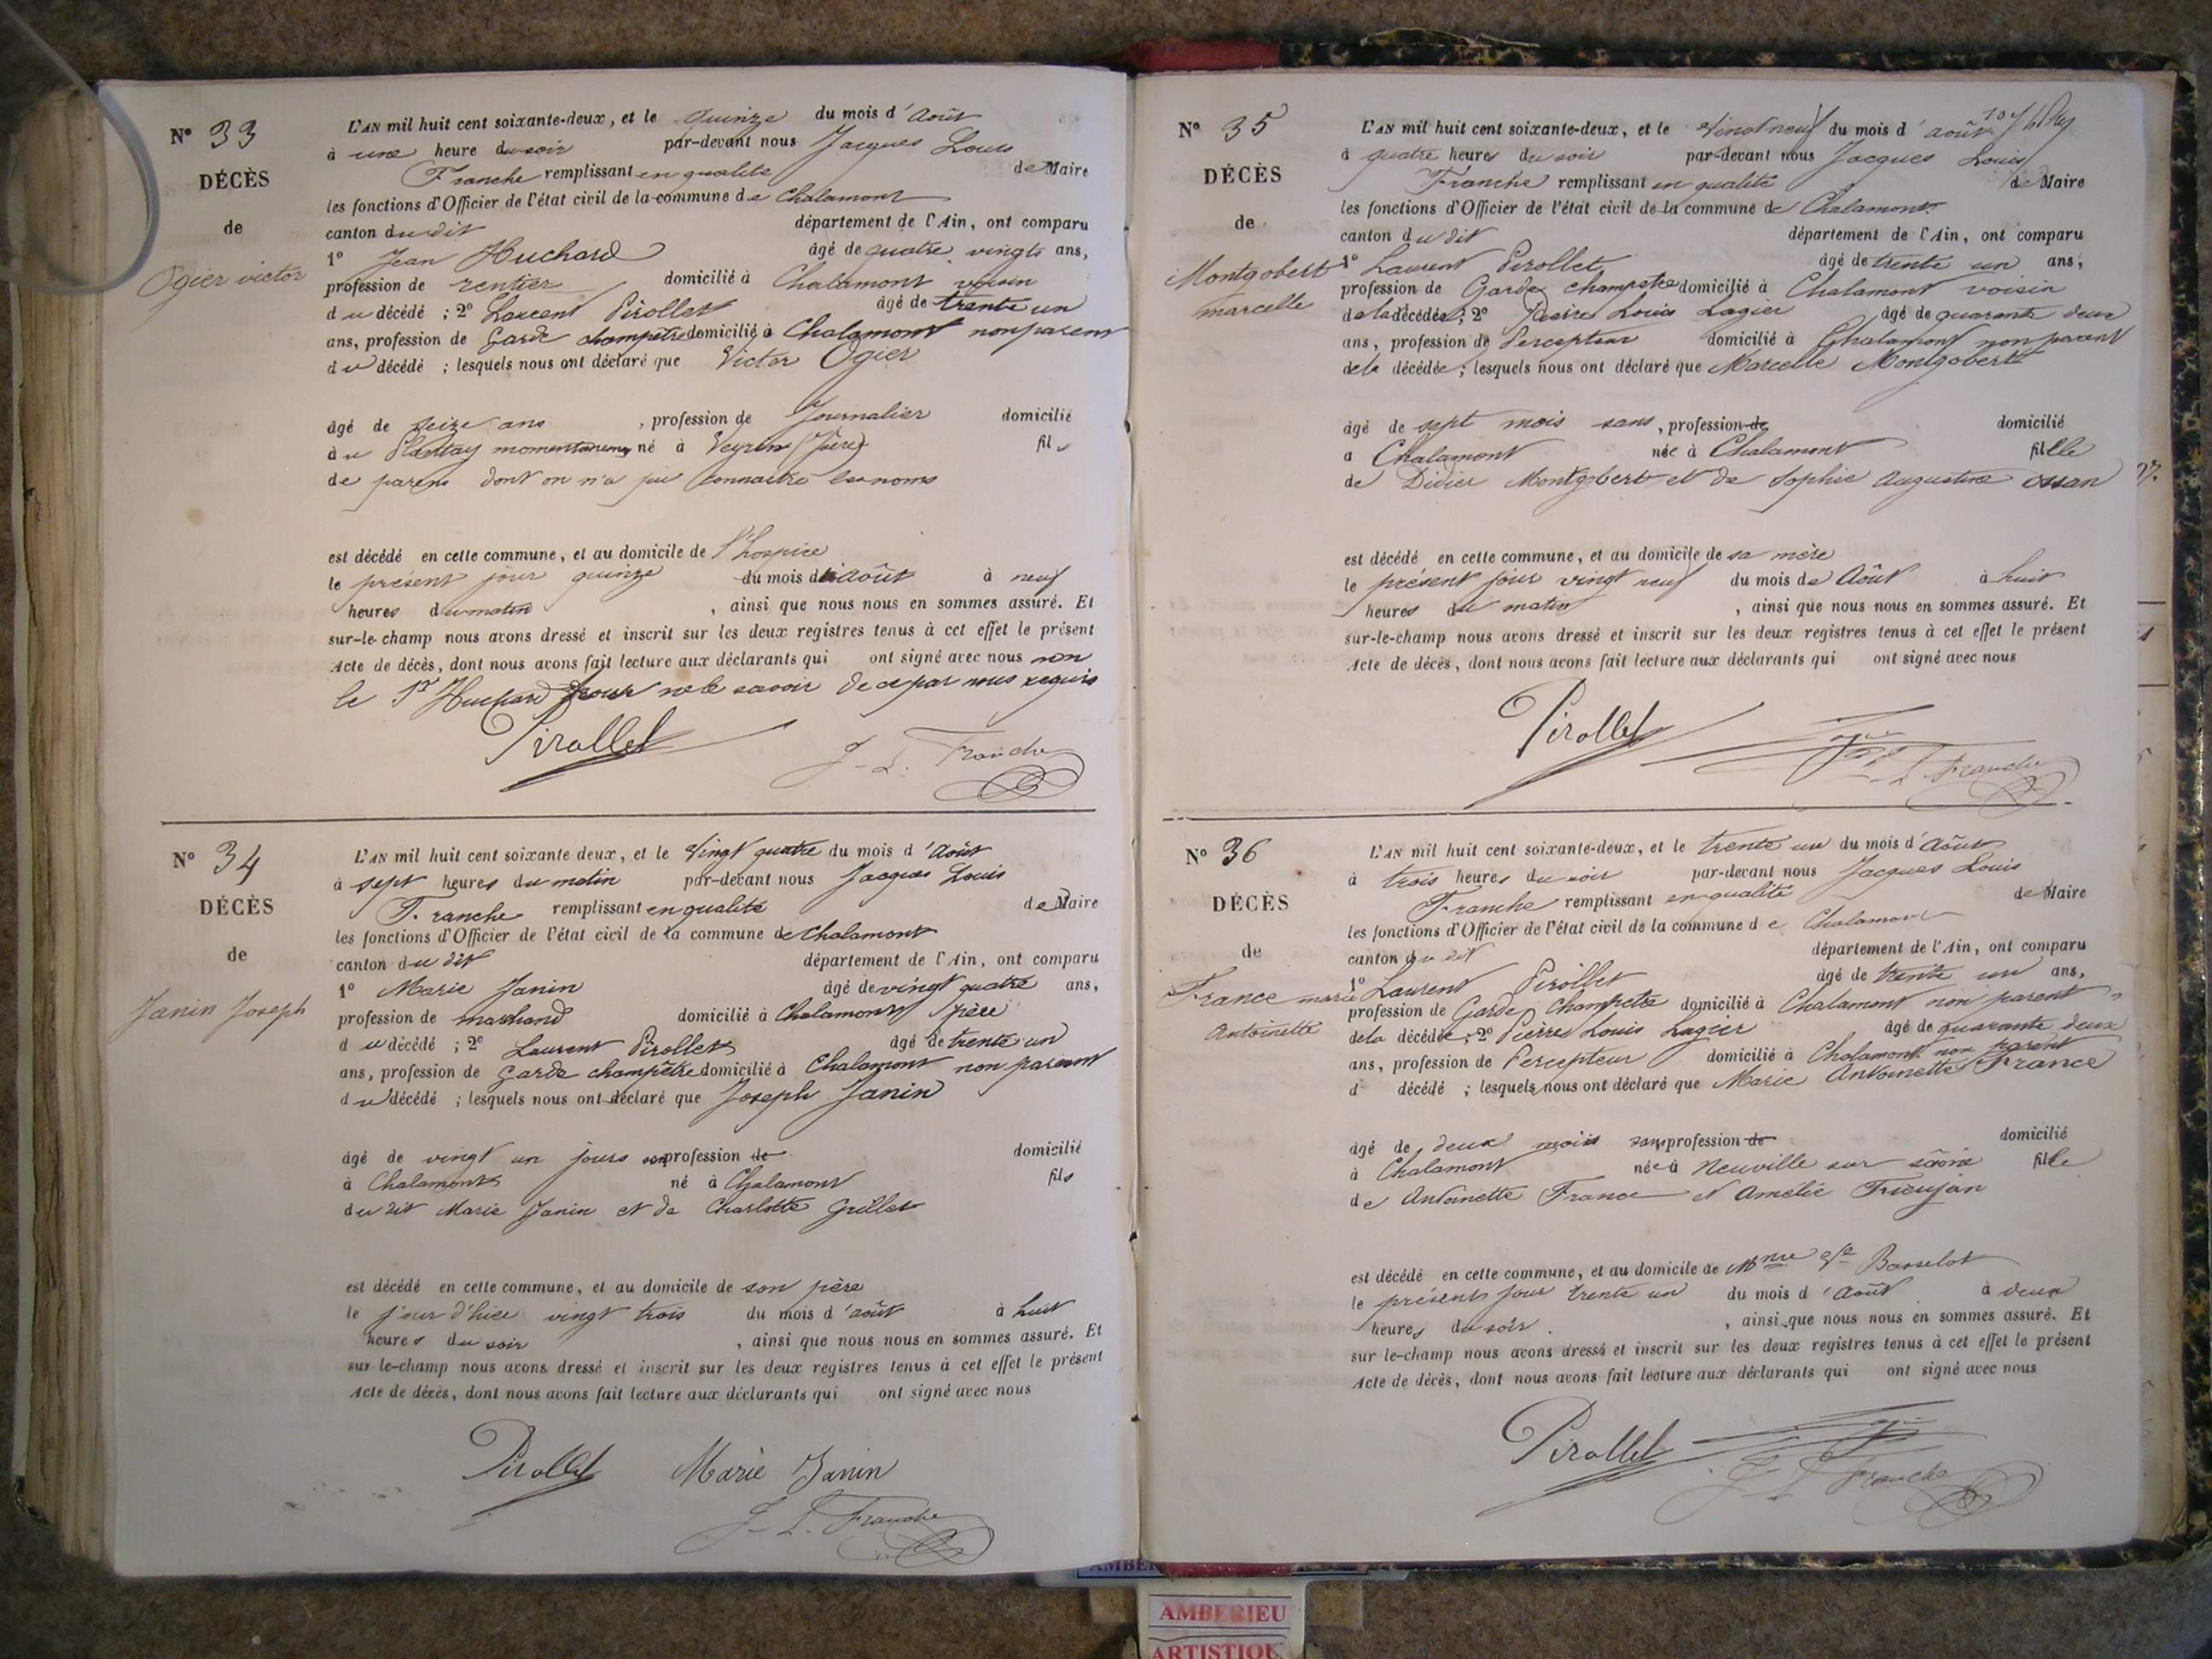 N° 33
DÉCÈS
de
Ogier victor
L'AN mil huit cent soixante-deux, et le quinze du mois d'août
à une heure du soir par-devant nous Jacques Louis
Franche remplissant en qualité de Maire
les fonctions d'Officier de l'état civil de la commune de Chalamont
canton du dit département de l'Ain, ont comparu
1° Jean Huchard âgé de quatre vingts ans,
profession de rentier domicilié à Chalamont voisin
du décédé ; 2° Laurent Pirollet âgé de trente un
ans, profession de Garde champêtre domicilié à Chalamont non parent
du décédé ; lesquels nous ont déclaré que Victor Ogier
âgé de seize ans , profession de Journalier domicilié
au Plantay né à Veyrin (Isère) fils
de parens dont on n'a pu connaitre les noms
est décédé en cette commune, et au domicile de l'hospice
le présent jour quinze du mois d'août à neuf
heures du matin , ainsi que nous nous en sommes assuré. Et
sur-le-champ nous avons dressé et inscrit sur les deux registres tenus à cet effet le présent
Acte de décès, dont nous avons fait lecture aux déclarants qui ont signé avec nous non
le Sr Huchard pour ne le savoir de ce par nous requis
Pirollet
J-L. Franche
N° 34
DÉCÈS
de
Janin Joseph
L'AN mil huit cent soixante deux, et le Vingt quatre du mois d'août
à sept heures du matin par-devant nous Jacques Louis
Franche remplissant en qualité de Maire
les fonctions d'Officier de l'état civil de la commune de Chalamont
canton du dit département de l'Ain, ont comparu
1° Marie Janin âgé de vingt quatre ans,
profession de marchand domicilié à Chalamont père
du décédé ; 2° Laurent Pirollet âgé de trente un
ans, profession de Garde champêtre domicilié à Chalamont non parent
du décédé ; lesquels nous ont déclaré que Joseph Janin
âgé de vingt un jours sans profession de domicilié
à Chalamont né à Chalamont fils
du dit Marie Janin et de Charlotte Grillet
est décédé en cette commune, et au domicile de son père
le jour d'hier vingt trois du mois d'août à huit
heures du soir , ainsi que nous nous en sommes assuré. Et
sur-le-champ nous avons dressé et inscrit sur les deux registres tenus à cet effet le présent
Acte de décès, dont nous avons fait lecture aux déclarants qui ont signé avec nous
Pirollet Marie Janin
J-L. Franche
N° 35
DÉCÈS
de
Montgobert
marcelle
L'AN mil huit cent soixante-deux, et le Vingt neuf du mois d'août
à quatre heures du soir par-devant nous Jacques Louis
Franche remplissant en qualité de Maire
les fonctions d'Officier de l'état civil de la commune de Chalamont
canton du dit département de l'Ain, ont comparu
1° Laurent Pirollet âgé de trente un ans,
profession de Garde champetre domicilié à Chalamont voisin
de la décédée ; 2° Pierre Louis Lagier âgé de quarante deux
ans, profession de Percepteur domicilié à Chalamont non parent
de la décédée ; lesquels nous ont déclaré que Marcelle Montgobert
âgé de sept mois sans , profession de domicilié
à Chalamont née à Chalamont fille
de Didier Montgobert et de Sophie Augustine ossan
est décédé en cette commune, et au domicile de sa mère
le présent jour vingt neuf du mois de Août à huit
heures du matin , ainsi que nous nous en sommes assuré. Et
sur-le-champ nous avons dressé et inscrit sur les deux registres tenus à cet effet le présent
Acte de décès, dont nous avons fait lecture aux déclarants qui ont signé avec nous
Pirollet
J-L. Franche
N° 36
DÉCÈS
de
France marie
Antoinette
L'AN mil huit cent soixante-deux, et le trente un du mois d'août
à trois heures du soir par-devant nous Jacques Louis
Franche remplissant en qualité de Maire
les fonctions d'Officier de l'état civil de la commune de Chalamont
canton du dit département de l'Ain, ont comparu
1° Laurent Pirollet âgé de trente un ans,
profession de Garde Champetre domicilié à Chalamont non parent
de la décédée ; 2° Pierre Louis Lagier âgé de quarante deux
ans, profession de Percepteur domicilié à Chalamont non parent
d décédé ; lesquels nous ont déclaré que Marie Antoinette France
âgé de deux mois sans profession de domicilié
à Chalamont née à Neuville sur saône fille
de Antoinette France et Amélie
est décédé en cette commune, et au domicile de Basselot
le présent jour trente un du mois d'août à deux
heures du soir , ainsi que nous nous en sommes assuré. Et
sur le-champ nous avons dressé et inscrit sur les deux registres tenus à cet effet le présent
Acte de décès, dont nous avons fait lecture aux déclarants qui ont signé avec nous
Pirollet
J-L Franche
AMBERIEU
ARTISTIQUE